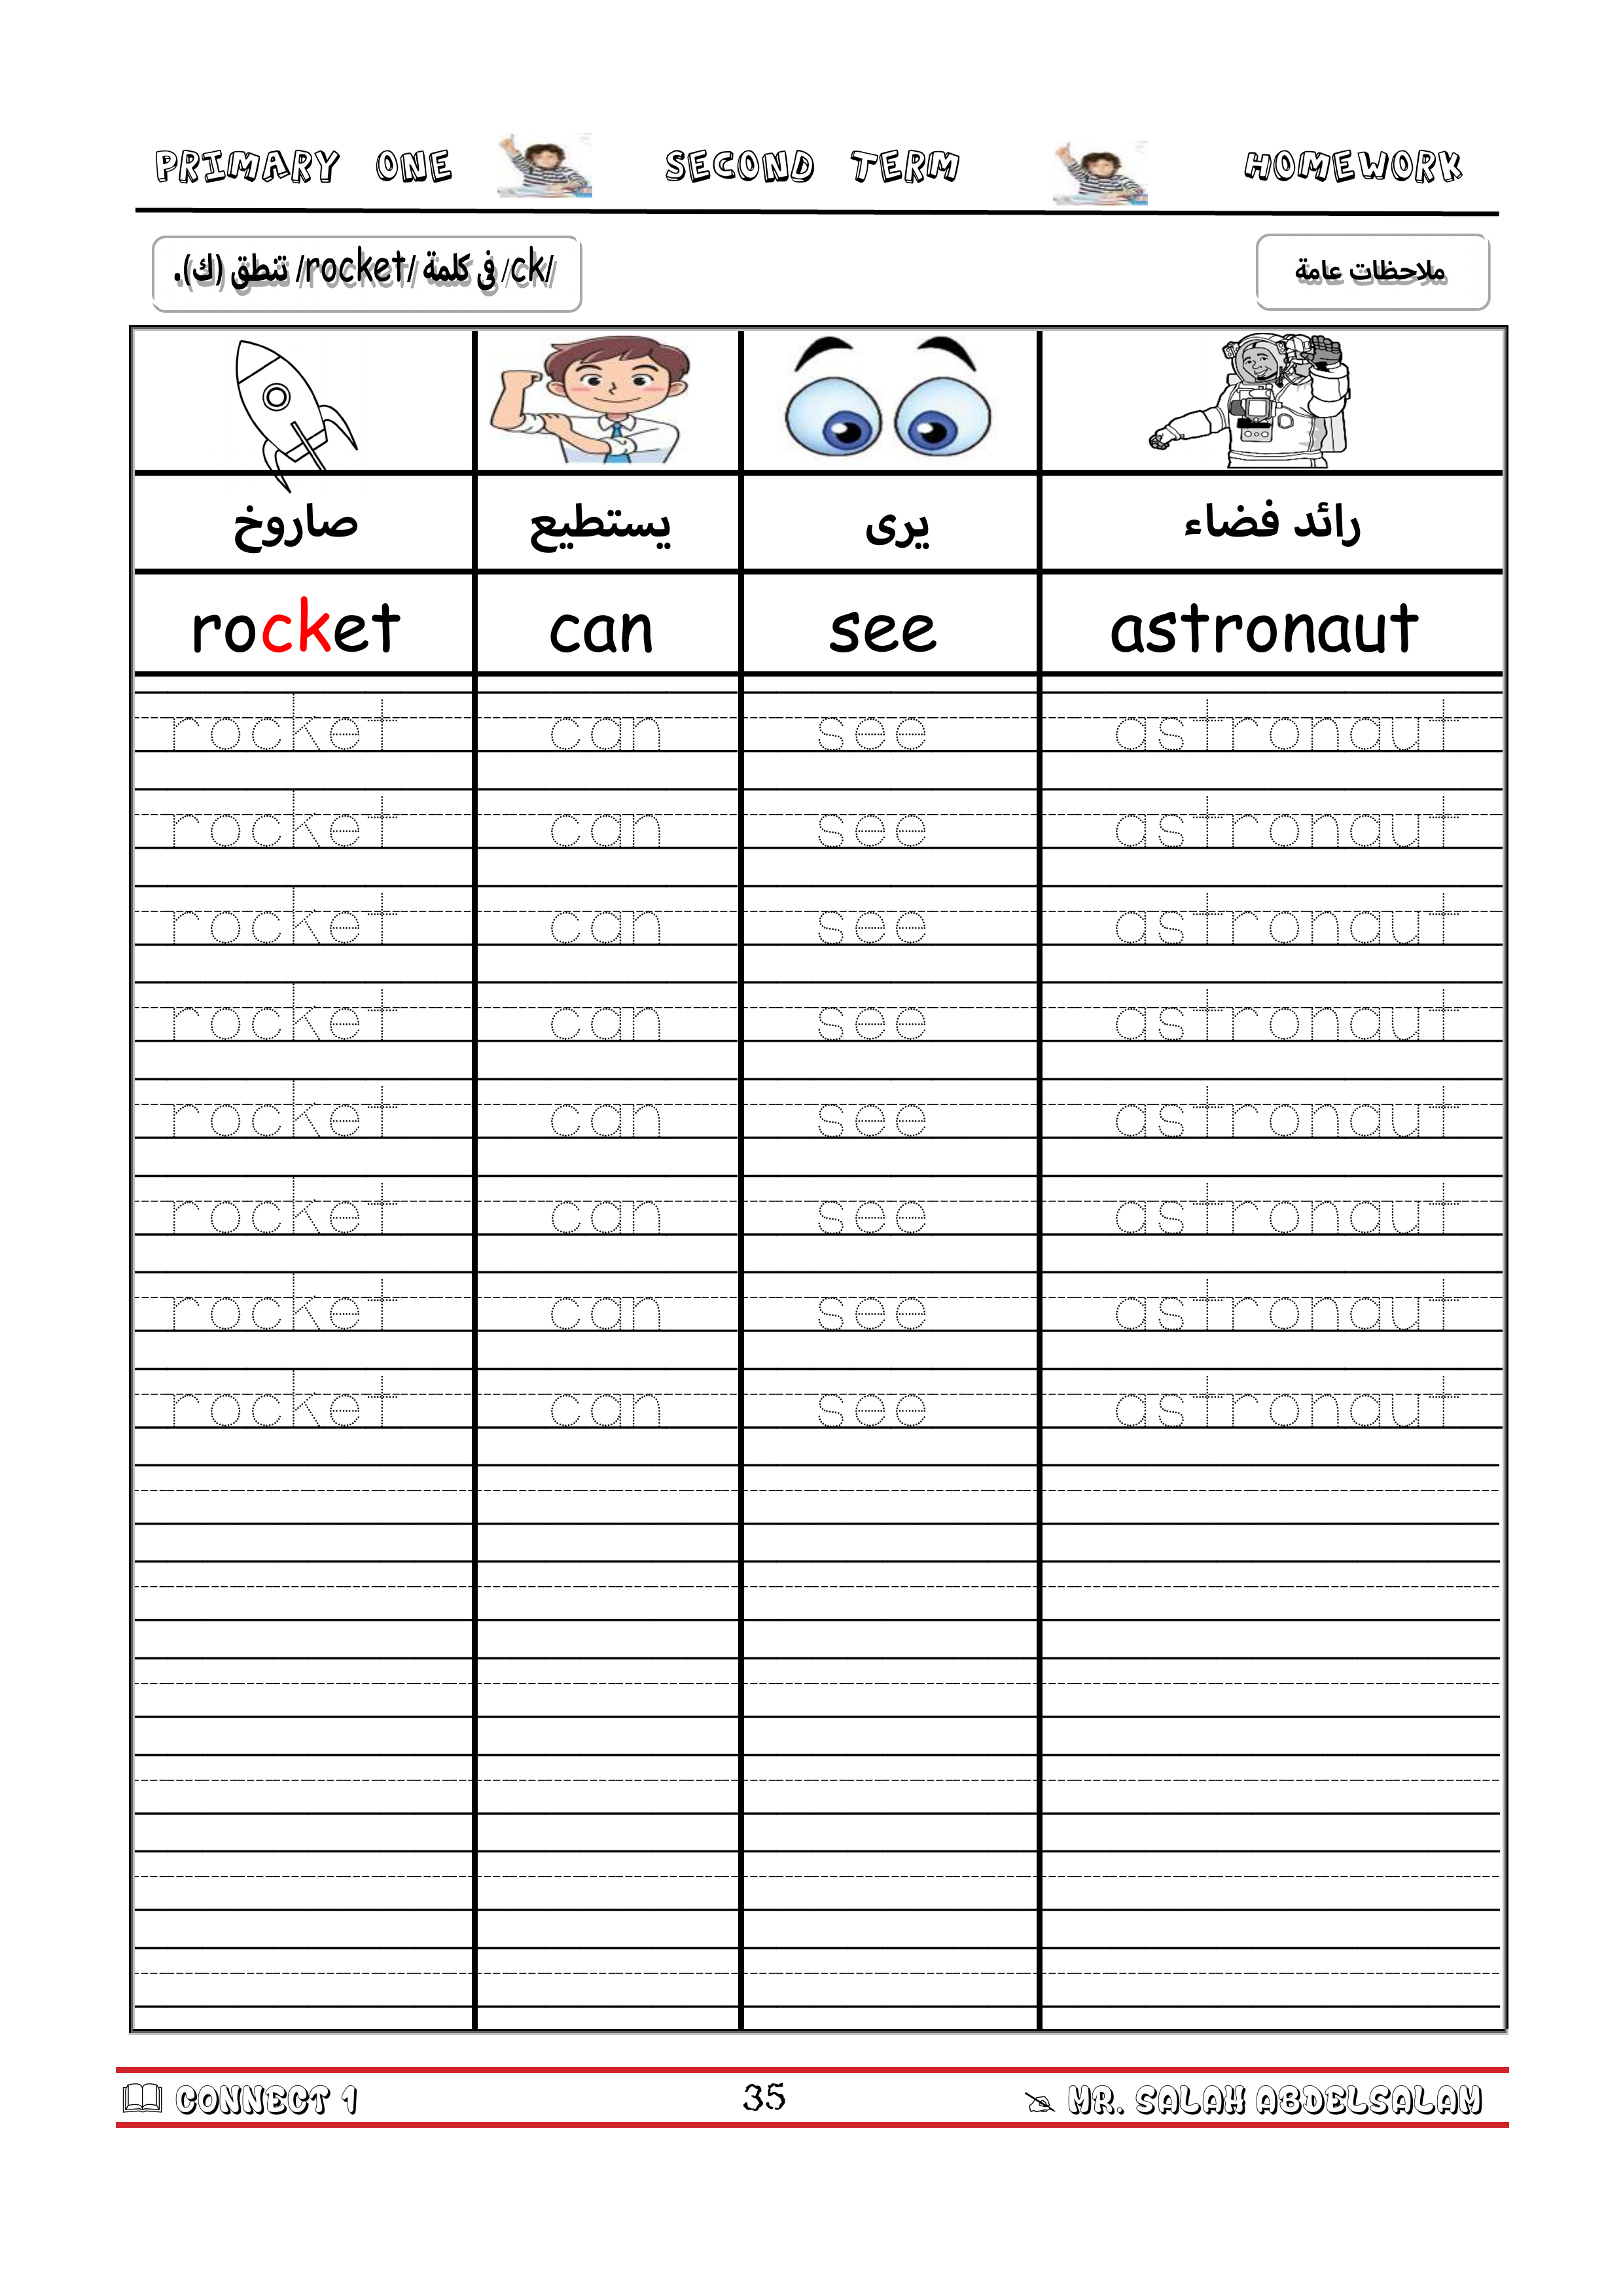 PRIMARY ONE SECOND TERM HOMEWORK
ملاحظات عامة
/ck/ فى كلمة /rocket/ تنطق (ك).
صاروخ يستطيع يرى رائد فضاء
rocket can see astronaut
rocket can see astronaut
rocket can see astronaut
rocket can see astronaut
rocket can see astronaut
rocket can see astronaut
rocket can see astronaut
rocket can see astronaut
rocket can see astronaut
CONNECT 1 35 MR. SALAH ABDELSALAM